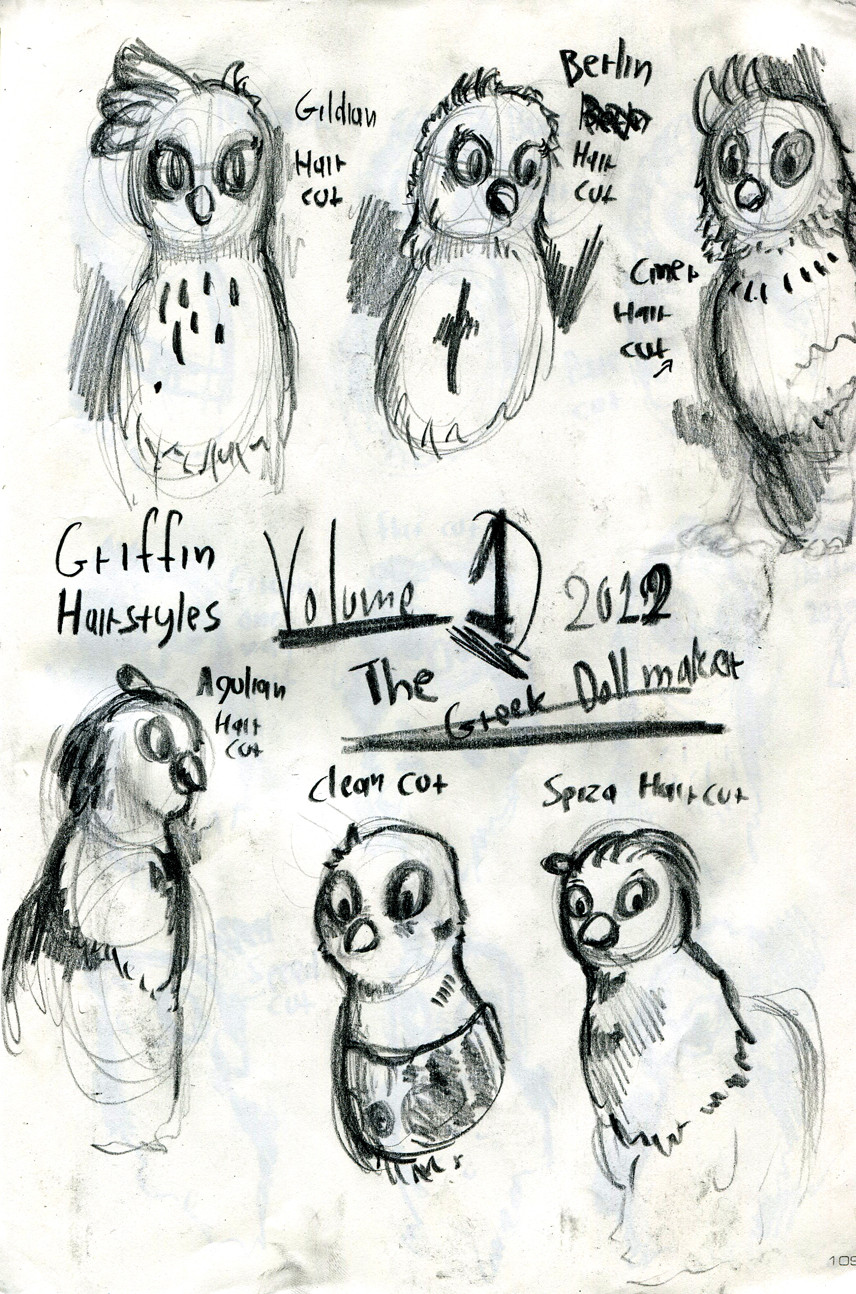 Gildian
Hair
cut
Berlin
Hair
cut
Hair
cut
Griffin
Hairstyles
Volume 1
2012
The
Greek Dollmaker
Agulian
Hair
cut
Clean cut
Spiza Haircut
109